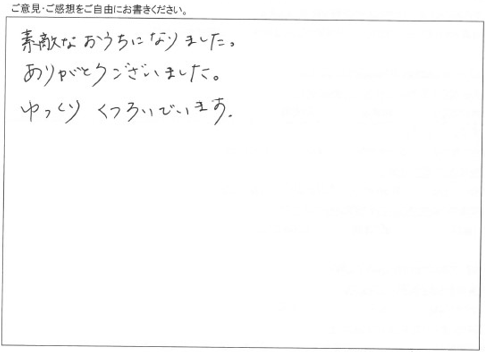 ご意見・ご感想をご自由にお書きください。
素敵なおうちになりました。
ありがとうございました。
ゆっくり くつろいでいます。